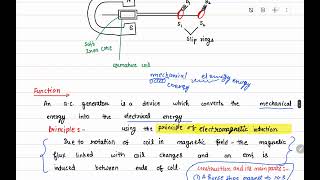 N
S
B₁
B₂
S₁
S₂
Slip rings
Soft
Iron core
armature coil
mechanical
energy
el energy
energy
Function
An a.c. generator is a device which converts the mechanical
energy into the electrical energy
Principle :- using the principle of electromagnetic induction.
Due to rotation of coil in magnetic field - the magnetic
flux linked with coil changes and an emf is
induced between ends of coil.
Construction and its main parts:-
(1) A fierce shoe magnet to N-S